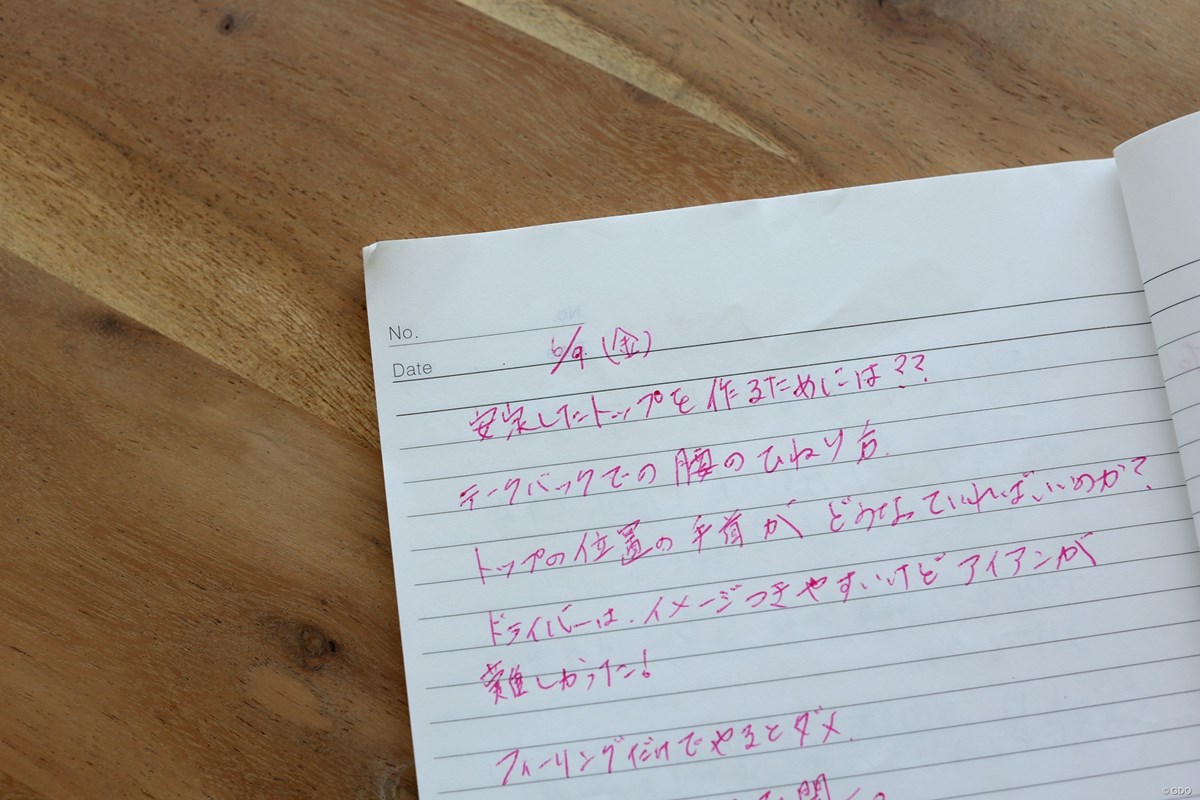 No.
Date 6/9 (金)
安定したトップを作るためには??
テークバックでの腰のひねり方.
トップの位置の手首がどうなっていればいいのか?
ドライバーは、イメージつきやすいけどアイアンが
難しかった!
フィーリングだけでやるとダメ.
©GDO